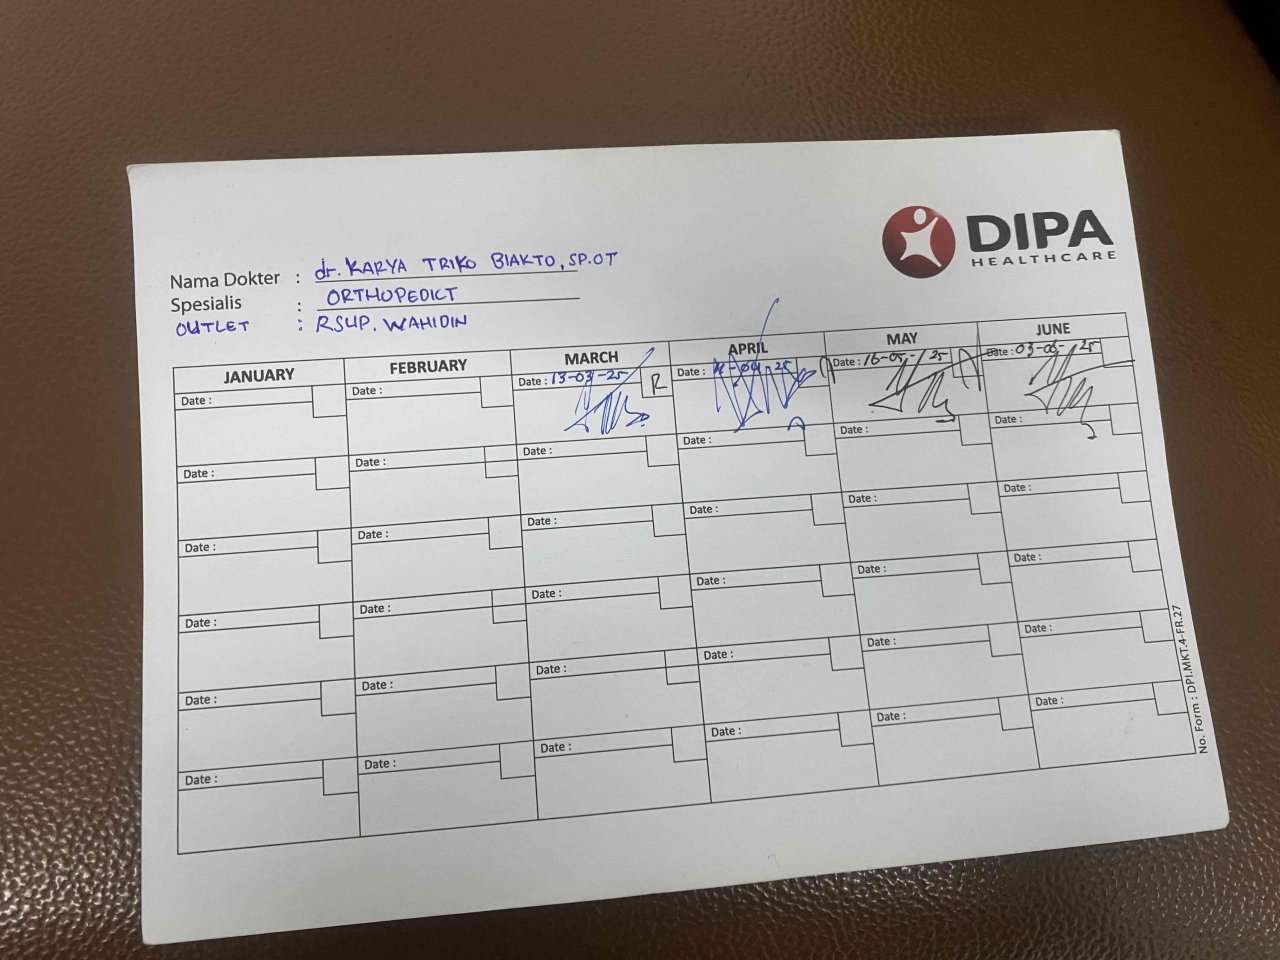 DIPA
HEALTHCARE
Nama Dokter : dr. KARYA TRIKO BIAKTO, SP.OT
Spesialis : ORTHOPEDICT
OUTLET : RSUP. WAHIDIN
JANUARY FEBRUARY MARCH APRIL MAY JUNE
Date : Date : Date : 13-03-25 R Date : Date : 16-05-25 Date : 03-06-25
Date : Date : Date : Date : Date : Date :
Date : Date : Date : Date : Date : Date :
Date : Date : Date : Date : Date : Date :
Date : Date : Date : Date : Date : Date :
Date : Date : Date : Date : Date : Date :
No. Form : DPI.MKT.4-FR.27